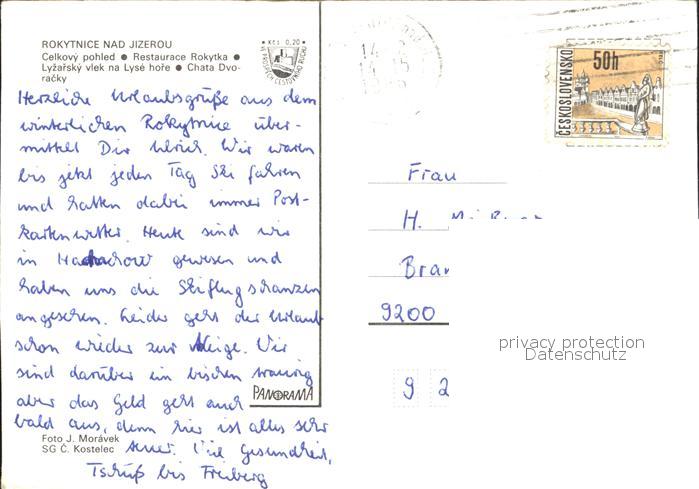 ROKYTNICE NAD JIZEROU
Celkový pohled ● Restaurace Rokytka ●
Lyžařský vlek na Lysé hoře ● Chata Dvo-
račky
Kčs 0,20
VE PROSPĚCH CESTOVNÍHO RUCHU
Herzliche Urlaubsgrüße aus dem
winterlichen Rokytnice über-
mittelt Dir Ulrich. Wir waren
bis jetzt jeden Tag Ski fahren
und hatten dabei immer Post-
kartenwetter. Heute sind wir
in Harrachow gewesen und
haben uns die Skiflugschanzen
angesehen. Leider geht der Urlaub
schon wieder zur Neige. Wir
sind darüber ein bischen traurig
aber das Geld geht auch
bald aus, denn hier ist alles sehr
teuer. Viel Gesundheit,
Tschüß bis Freiberg
PANORAMA
Foto J. Morávek
SG Č. Kostelec
ČESKOSLOVENSKO
50h
Frau
H.
Bra
9200
9 2
privacy protection
Datenschutz